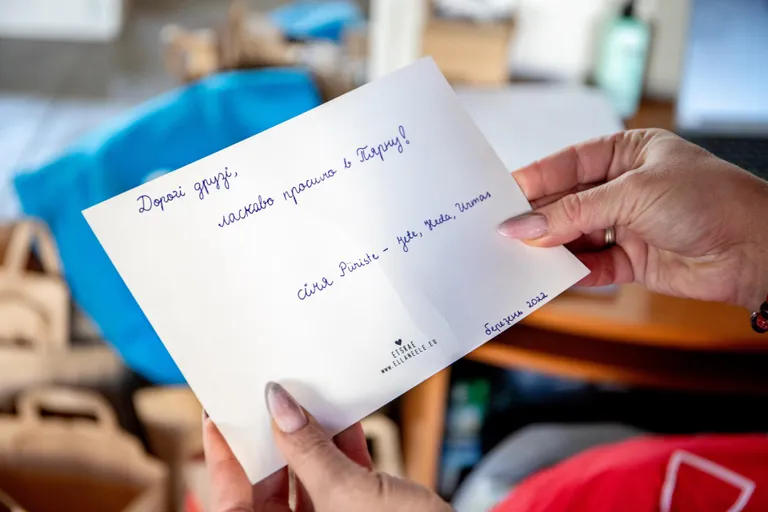 Дорогі друзі,
ласкаво просимо в Пярну!
сіия Püriste - Jete, Heda, Urmas
березень 2022
ETSKAE
WWW.ELLANEELE.EU